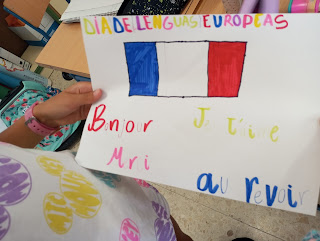 DÍA DE LENGUAS EUROPEAS
Bonjour
Je t'aime
Mri
au revoir